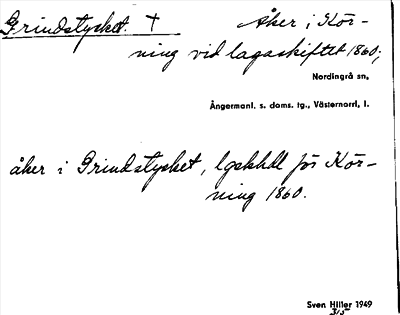 Grindstycket. † Åker i Kör-
ning vid lagaskiftet 1860;
Nordingrå sn,
Ångermanl. s. doms. tg., Västernorrl. l.
åker i Grindstycket, lgskhdl för Kör-
ning 1860.
Sven Hiller 1949
315